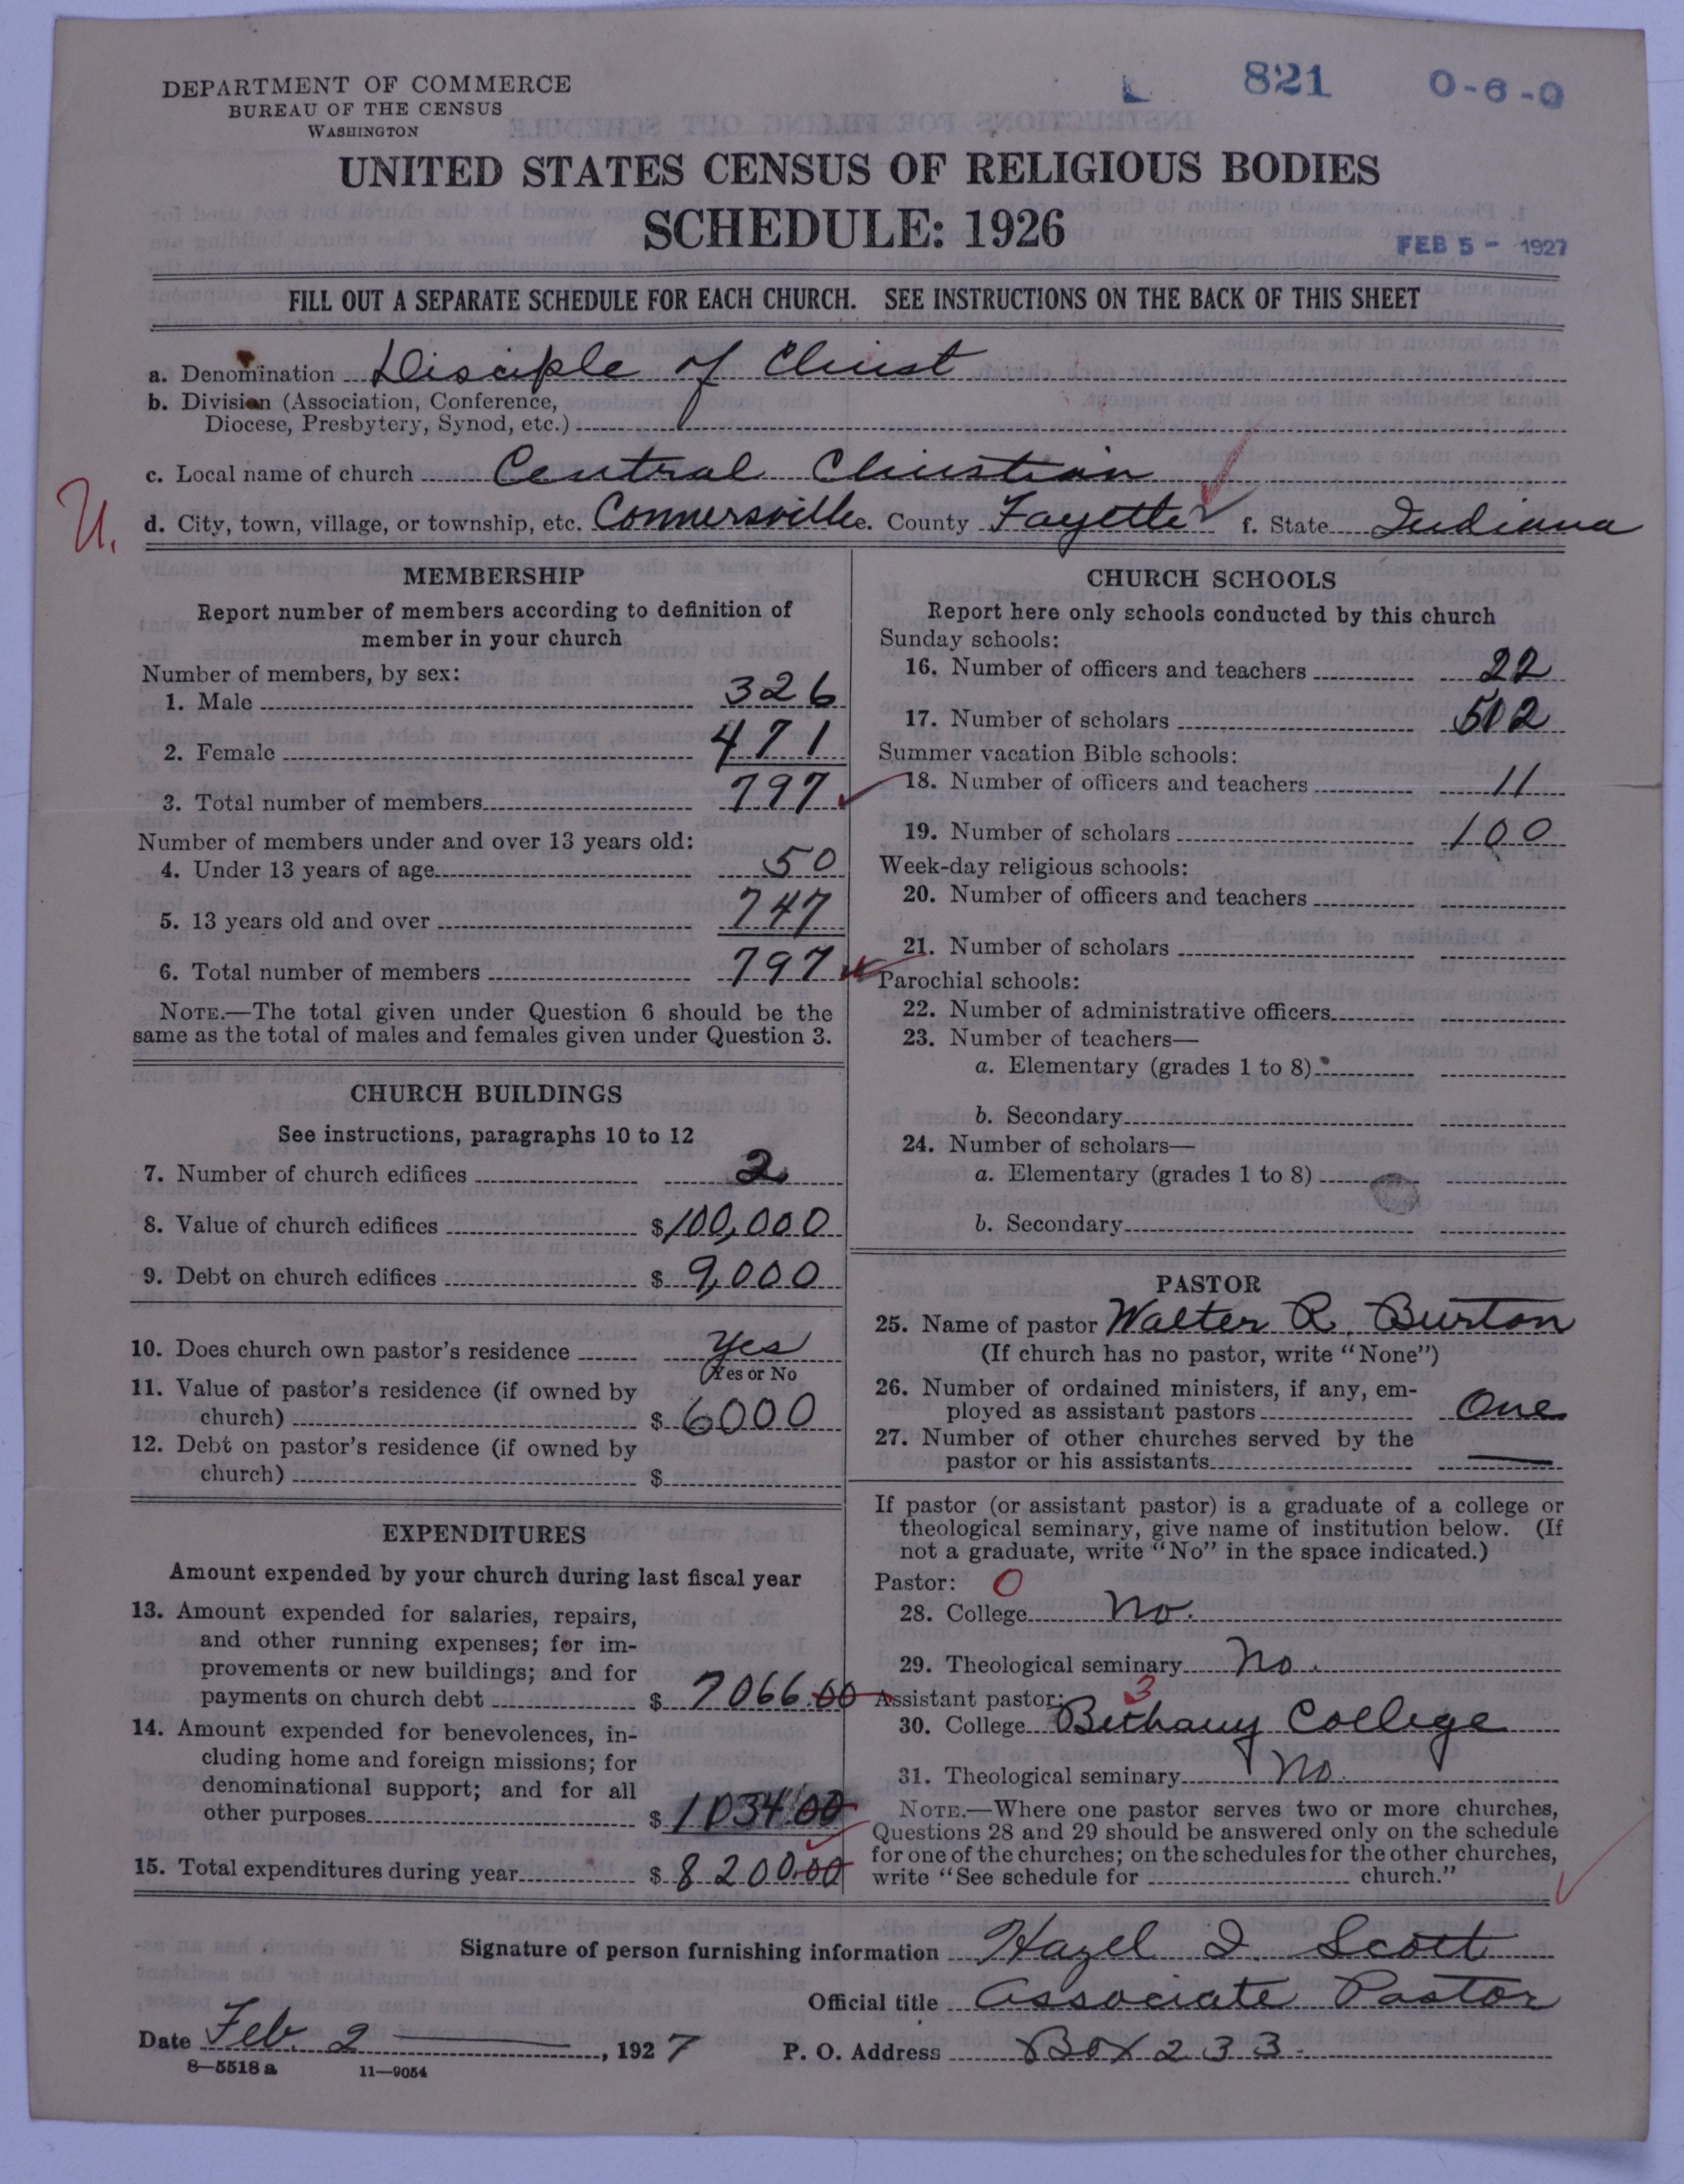 821 0-6-0
DEPARTMENT OF COMMERCE
BUREAU OF THE CENSUS
WASHINGTON
UNITED STATES CENSUS OF RELIGIOUS BODIES
SCHEDULE: 1926
FEB 5 - 1927
FILL OUT A SEPARATE SCHEDULE FOR EACH CHURCH. SEE INSTRUCTIONS ON THE BACK OF THIS SHEET
a. Denomination Disciple of Christ
b. Division (Association, Conference,
Diocese, Presbytery, Synod, etc.)
c. Local name of church Central Christian
U.
d. City, town, village, or township, etc. Connersville e. County Fayette f. State Indiana
MEMBERSHIP
Report number of members according to definition of
member in your church
Number of members, by sex:
1. Male 326
2. Female 471
3. Total number of members 797
Number of members under and over 13 years old:
4. Under 13 years of age 50
5. 13 years old and over 747
6. Total number of members 797
NOTE.—The total given under Question 6 should be the
same as the total of males and females given under Question 3.
CHURCH BUILDINGS
See instructions, paragraphs 10 to 12
7. Number of church edifices 2
8. Value of church edifices $100,000
9. Debt on church edifices $ 9,000
10. Does church own pastor's residence Yes
(Yes or No
11. Value of pastor's residence (if owned by
church) $ 6000
12. Debt on pastor's residence (if owned by
church) $
EXPENDITURES
Amount expended by your church during last fiscal year
13. Amount expended for salaries, repairs,
and other running expenses; for im-
provements or new buildings; and for
payments on church debt $ 7066.00
14. Amount expended for benevolences, in-
cluding home and foreign missions; for
denominational support; and for all
other purposes $ 1034.00
15. Total expenditures during year $ 8200.00
CHURCH SCHOOLS
Report here only schools conducted by this church
Sunday schools:
16. Number of officers and teachers 22
17. Number of scholars 502
Summer vacation Bible schools:
18. Number of officers and teachers 11
19. Number of scholars 100
Week-day religious schools:
20. Number of officers and teachers
21. Number of scholars
Parochial schools:
22. Number of administrative officers
23. Number of teachers—
a. Elementary (grades 1 to 8)
b. Secondary
24. Number of scholars—
a. Elementary (grades 1 to 8)
b. Secondary
PASTOR
25. Name of pastor Walter R. Burton
(If church has no pastor, write "None")
26. Number of ordained ministers, if any, em-
ployed as assistant pastors One
27. Number of other churches served by the
pastor or his assistants —
If pastor (or assistant pastor) is a graduate of a college or
theological seminary, give name of institution below. (If
not a graduate, write "No" in the space indicated.)
Pastor: 0
28. College No.
29. Theological seminary No.
Assistant pastor: 3
30. College Bethany College
31. Theological seminary No.
NOTE.—Where one pastor serves two or more churches,
Questions 28 and 29 should be answered only on the schedule
for one of the churches; on the schedules for the other churches,
write "See schedule for church."
Signature of person furnishing information Hazel I. Scott
Official title Associate Pastor
Date Feb. 2 —, 1927 P. O. Address Box 233.
8—5518 a 11—9054